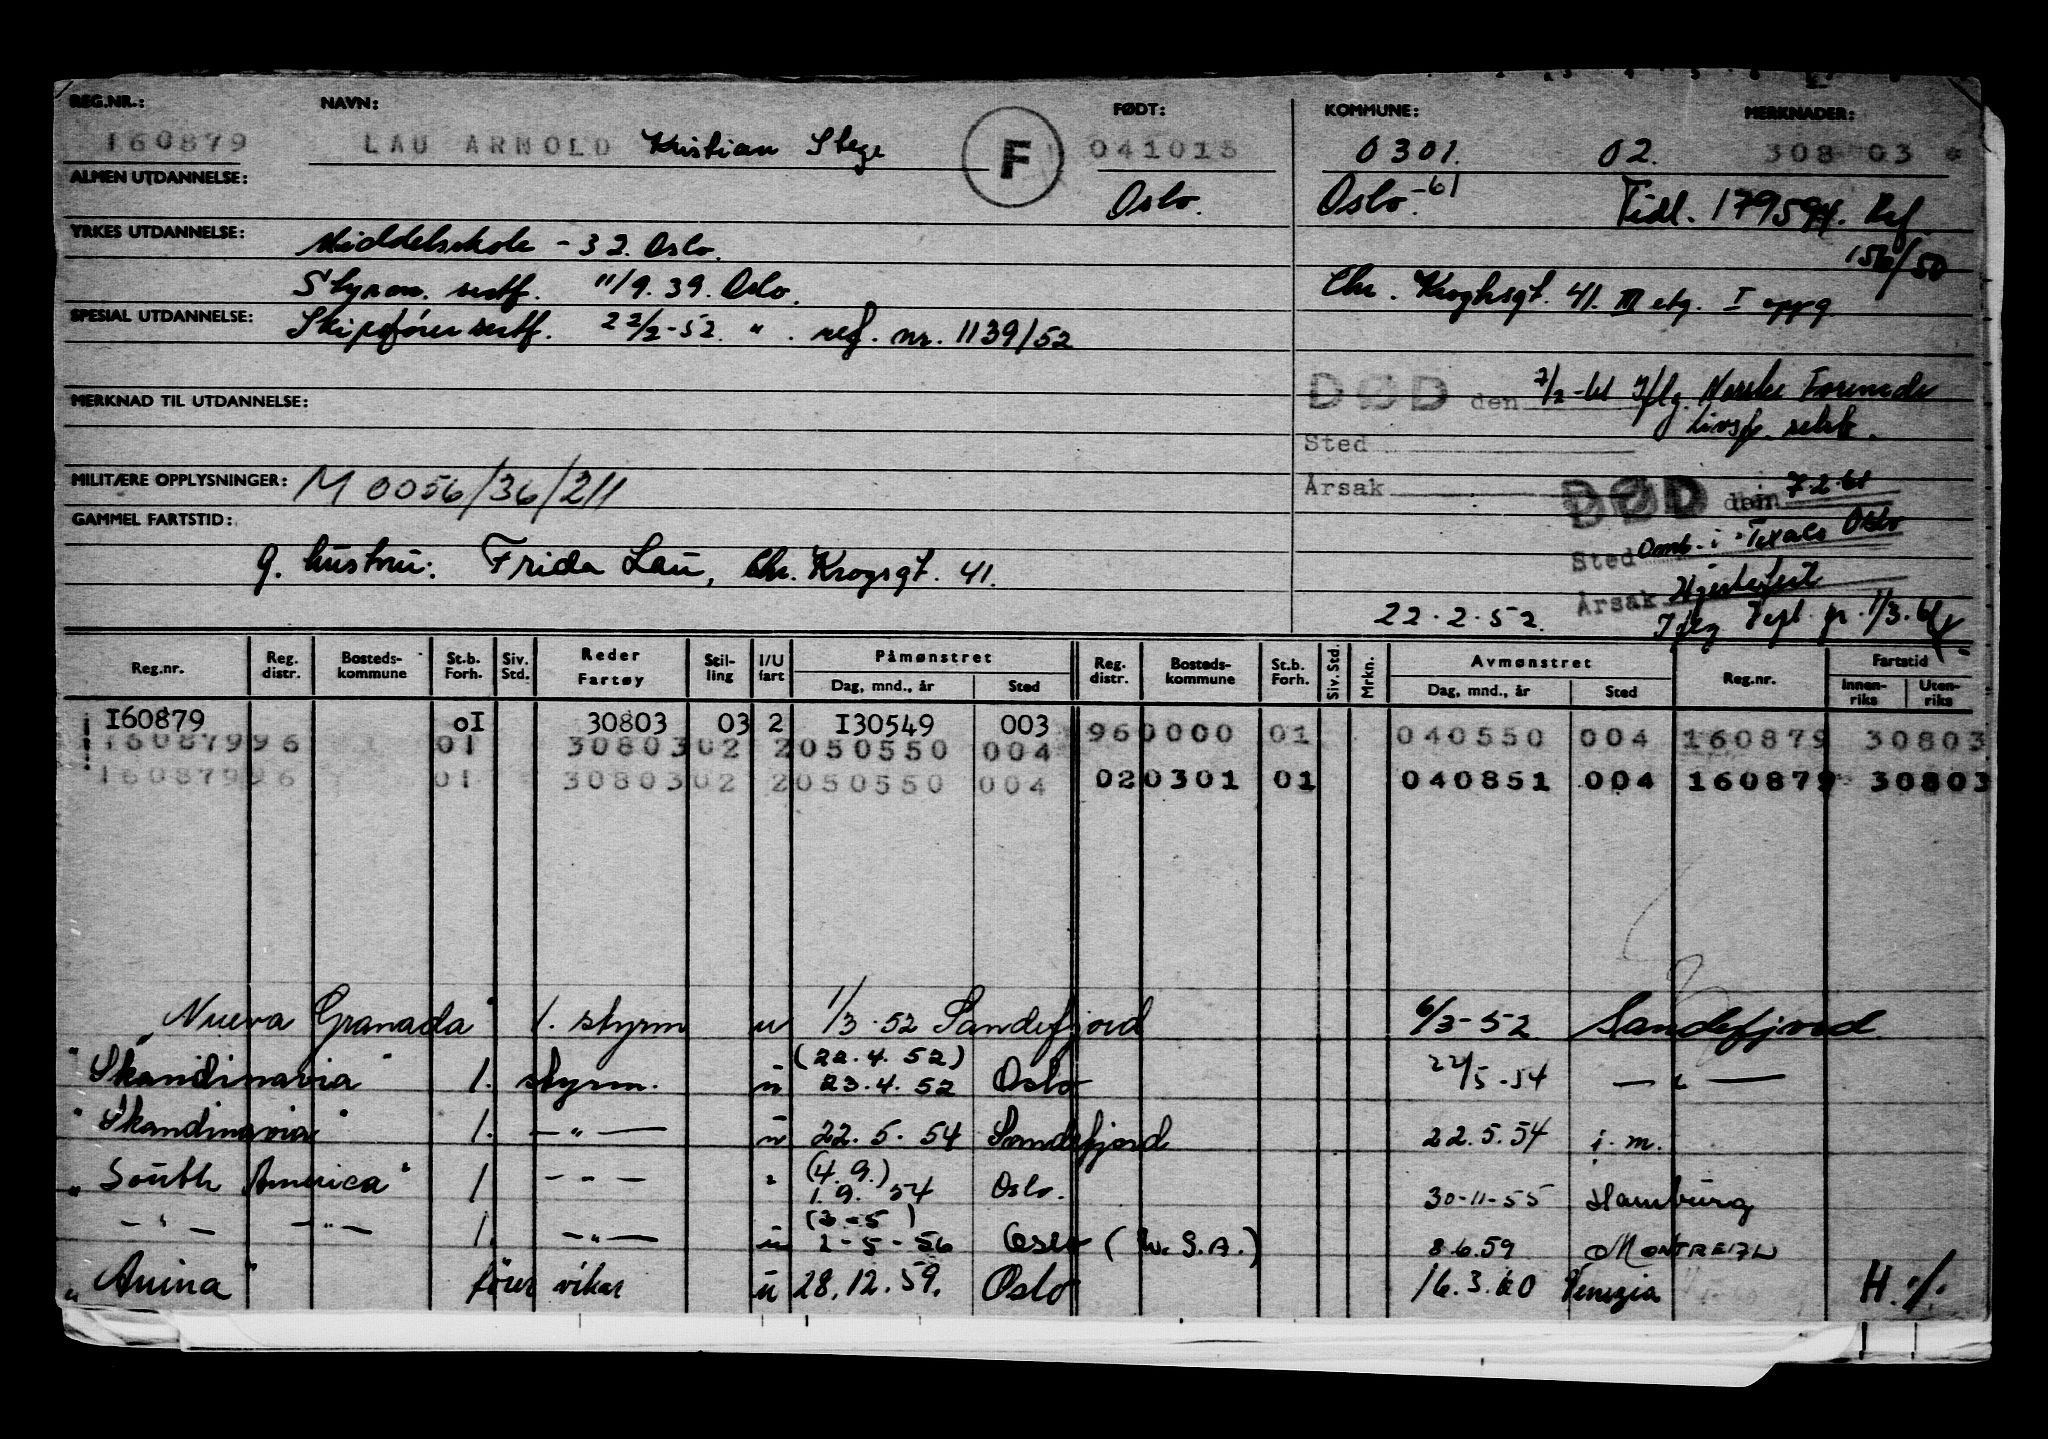 REG.NR.: NAVN: FØDT: KOMMUNE: MERKNADER:
160879 LAU ARNOLD Kristian Stege F 041015 0301. 02. 308 03
ALMEN UTDANNELSE: Oslo. Oslo.-61 Tidl. 179594. Ref. 156/50
YRKES UTDANNELSE: Middelskole - 32. Oslo.
Styrm. sertf. 11/9.39. Oslo. Chr. Kroghsgt. 41. III etg. I oppg.
SPESIAL UTDANNELSE: Skipsfører sertf. 22/2-52. " . ref. nr. 1139/52
DØD den 7/2-61 Iflg. Norske Forenede
Livsf. selsk.
MERKNAD TIL UTDANNELSE:
Sted
Årsak
MILITÆRE OPPLYSNINGER: M 0056/36/211 DØD den 7.2.61
GAMMEL FARTSTID:
Sted Omb. i "Texaco Oslo
g. hustru: Frida Lau, Chr. Krogsgt. 41.
Årsak Hjertefeil
22.2.52. Iflg 1/3.61
Reg.nr. Reg. distr. Bosteds-kommune St.b. Forh. Siv. Std. Reder Fartøy Stil-ling I/U fart Påmønstret Dag, mnd., år Sted Reg. distr. Bosteds-kommune St.b. Forh. Siv. Std. Mrkn. Avmønstret Dag, mnd., år Sted Reg.nr. Fartstid Innen-riks Uten-riks
160879 01 30803 03 2 130549 003 960000 01 040550 004 160879 30803
16087996 01 3080302 2050550 004 020301 01 040851 004 160879 30803
16087996 01 3080302 2050550 004
"Nueva Granada" 1. styrm u 1/3.52 Sandefjord 6/3-52 Sandefjord.
"Skandinavia" 1. styrm. u (22.4.52) 23.4.52 Oslo 22/5-54 — " —
"Skandinavia" 1. — " — u 22.5.54 Sandefjord 22.5.54 i.m.
"South America" 1 - - - " (4.9.) 1.9.54 Oslo. 30-11-55 Hamburg
— " — — " — 1. — " — u (3-5) 2-5-56 Oslo (W.S.A.) 8.6.59 MONTREAL
"Anina" fører vikar u 28.12.59. Oslo 16.3.60 Venezia H. %